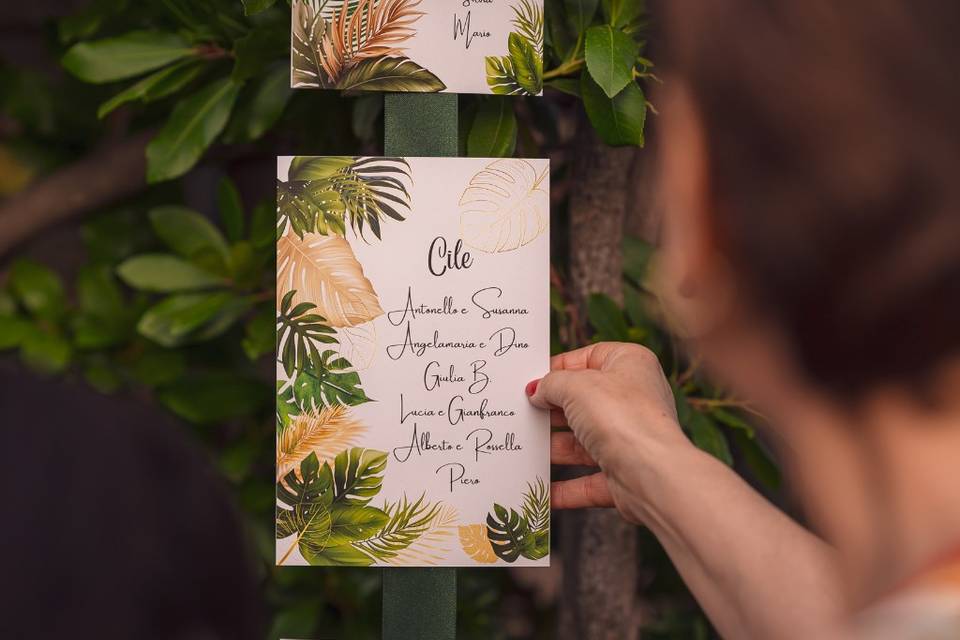 Mario
Cile
Antonello e Susanna
Angelamaria e Dino
Giulia B.
Lucia e Gianfranco
Alberto e Rossella
Piero